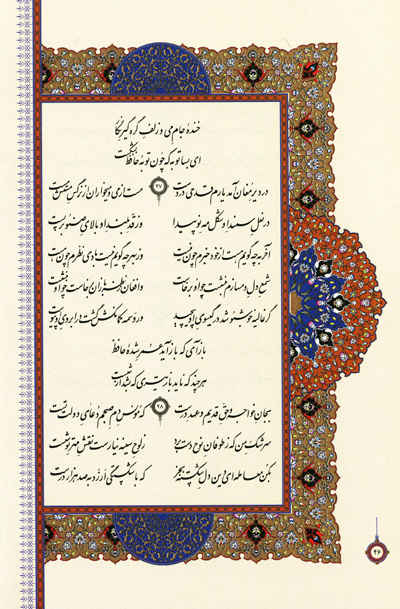 خندهٔ جام می و زلف گره گیر نگار
ای بسا توبه که چون توبهٔ حافظ بشکست
۲۷
در دیر مغان آمد یارم قدحی در دست مست از می و میخواران از نرگس مستش مست
در نعل سمند او شکل مه نو پیدا وز قد بلند او بالای صنوبر پست
آخر به چه گویم هست از خود خبرم چون نیست وز بهر چه گویم نیست با وی نظرم چون هست
شمع دل دمسازم بنشست چو او برخاست و افغان ز نظربازان برخاست چو او بنشست
گر غالیه خوشبو شد در گیسوی او پیچید ور وسمه کمانکش گشت در ابروی او پیوست
بازآی که بازآید عمر شدهٔ حافظ
هر چند که ناید باز تیری که بشد از شست
۲۸
بجان خواجه و حق قدیم و عهد درست که مونس دم صبحم دعای دولت تست
سرشک من که ز طوفان نوح دست برد ز لوح سینه نیارست نقش مهر تو شست
بکن معامله‌ای وین دل شکسته بخر که با شکستگی ارزد به صد هزار درست